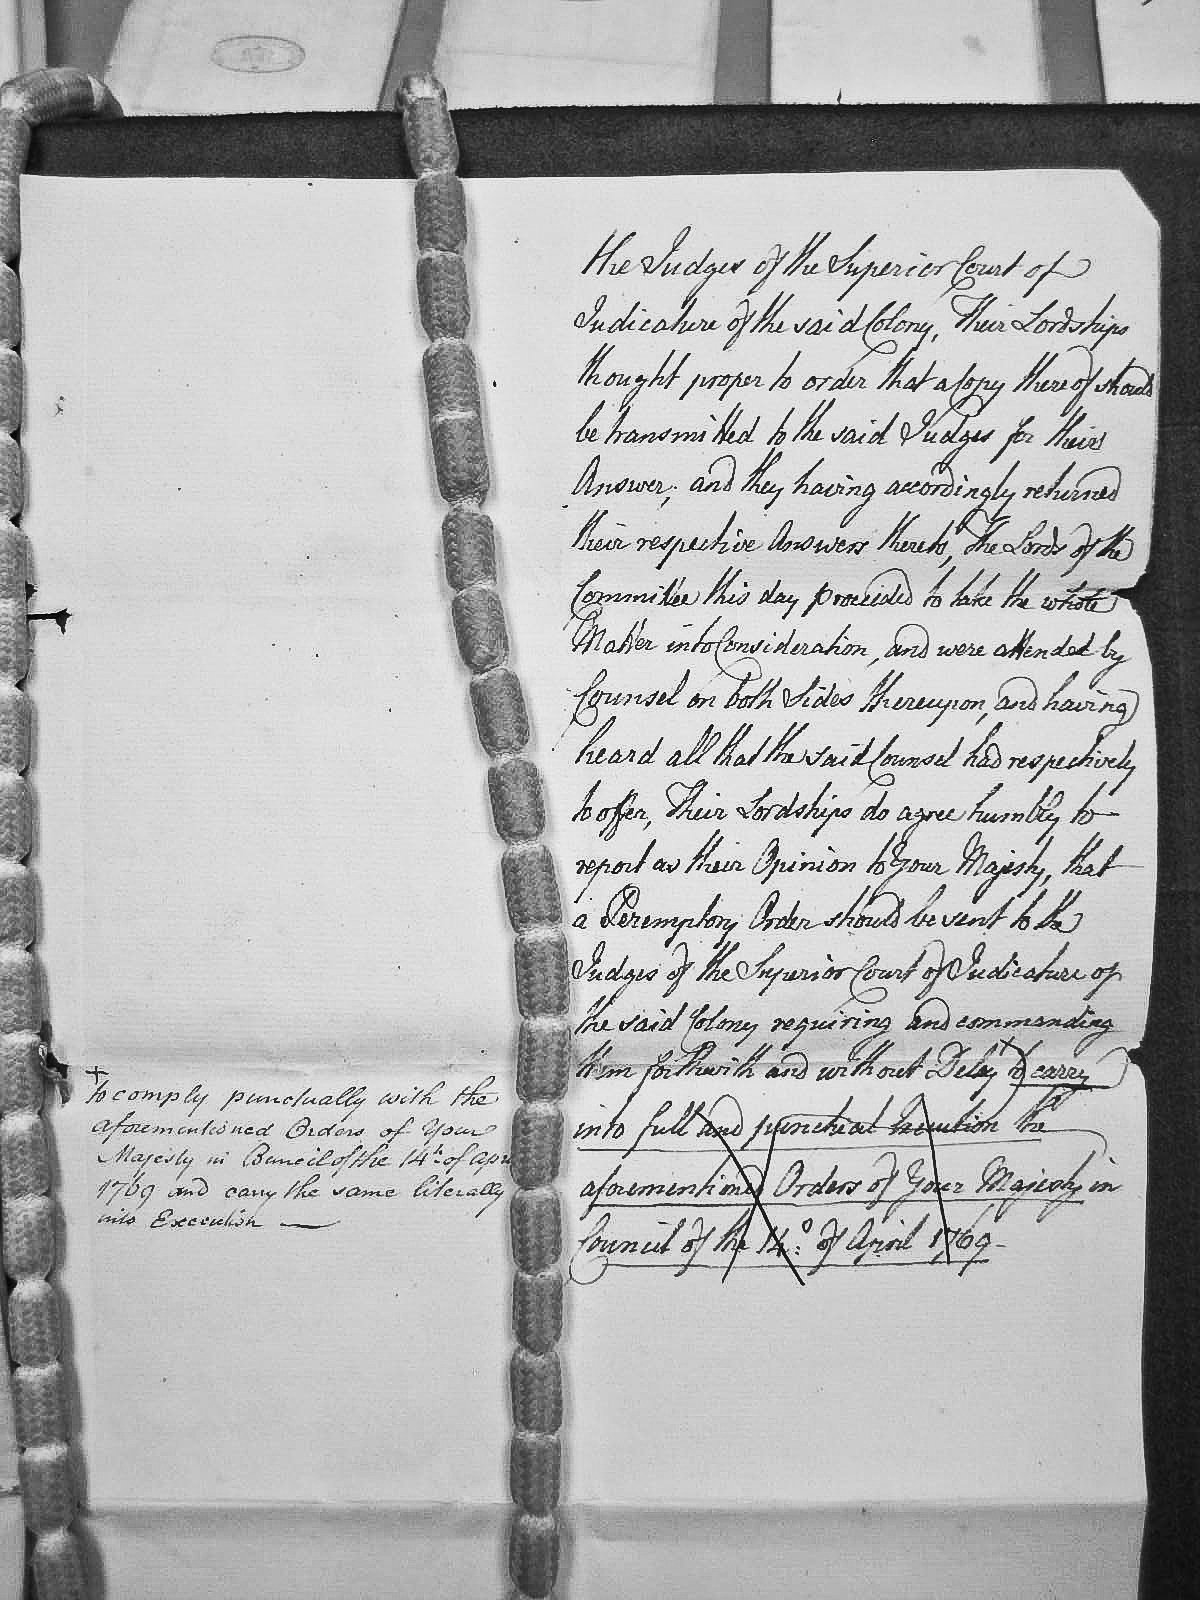 the Judges of the Superior Court of
Judicature of the said Colony, Their Lordships
thought proper to order that a Copy thereof should
be transmitted to the said Judges for their
Answer; and they having accordingly returned
their respective Answers thereto, The Lords of the
Committee this day proceeded to take the whole
Matter into Consideration, and were attended by
Counsel on both Sides thereupon, and having
heard all that the said Counsel had respectively
to offer, Their Lordships do agree humbly to
report as their Opinion to Your Majesty, that
a Peremptory Order should be sent to the
Judges of the Superior Court of Judicature of
the said Colony requiring and commanding
them forthwith and without Delay + to carry
into full and punctual Execution the
aforementioned Orders of Your Majesty in
Council of the 14.º of April 1769-
+
to comply punctually with the
aforementioned Orders of Your
Majesty in Council of the 14th of Apri
1769 and carry the same literally
into Execution —